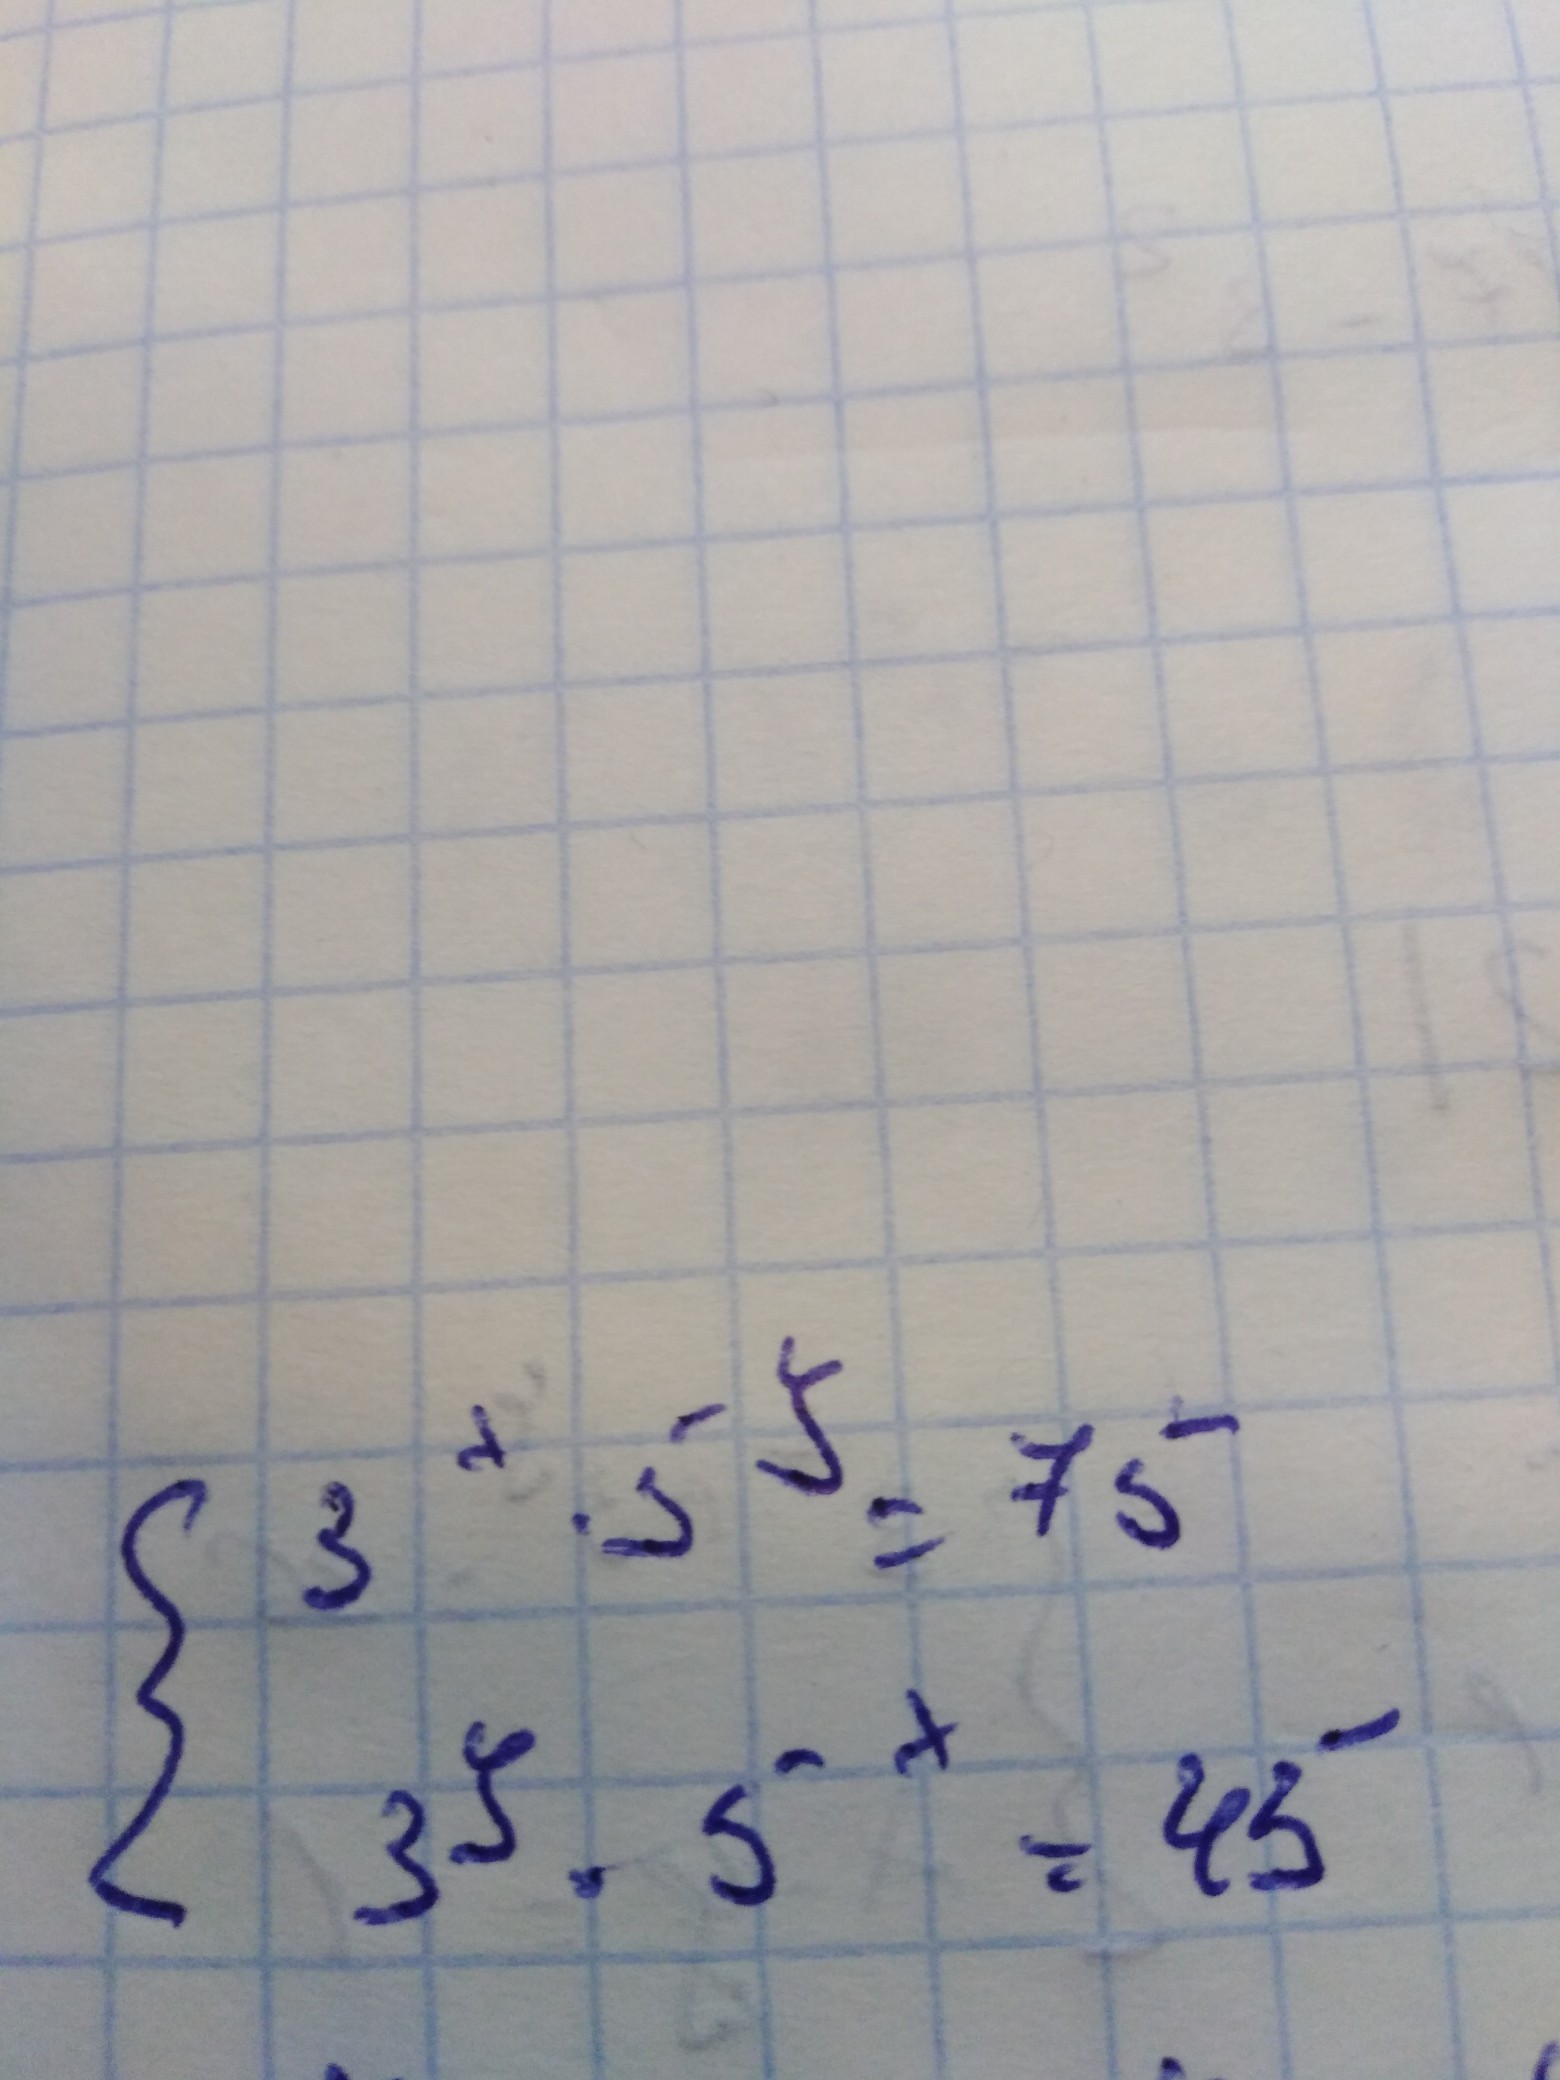 { 3^x · 5^y = 75
3^y · 5^x = 45